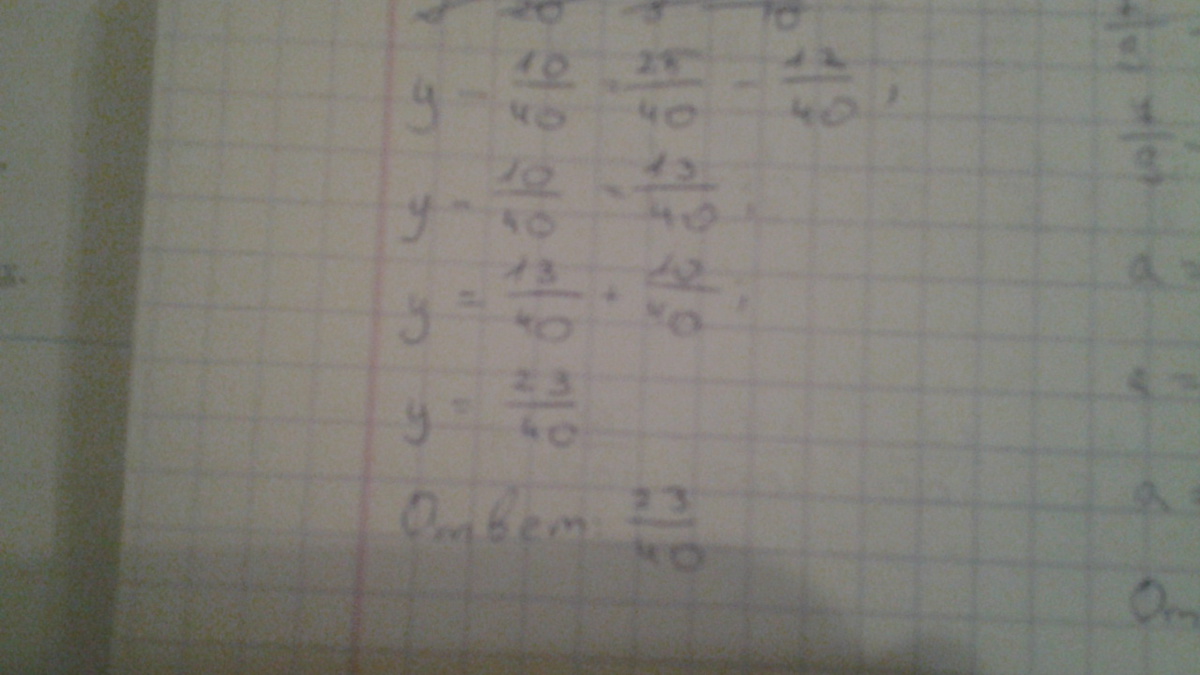 y - 10/40 = 25/40 - 12/40;
y - 10/40 = 13/40;
y = 13/40 + 10/40;
y = 23/40
Ответ: 23/40
a =
a =